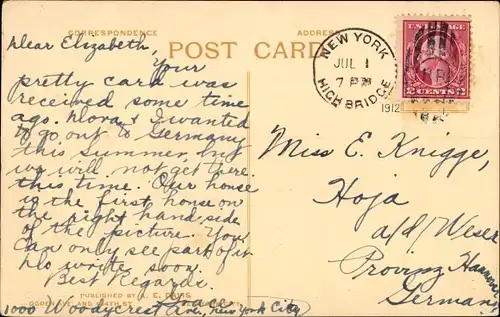 CORRESPONDENCE
ADDRESS
POST CARD
Dear Elizabeth,
Your
pretty card was
received some time
ago. Nora & I wanted
to go out to Germany
this summer, but
we will not get there
this time. Our house
is the first house on
the right hand side
of the picture. You
can only see part of it
Do write soon.
Best Regards
Grace
1000 Woodycrest Ave, New York City
PUBLISHED BY A. E.
OGDEN AVE. AND
NEW YORK
JUL 1
7 PM
HIGH BRIDGE
1912
U.S. POSTAGE
2 CENTS 2
Miss E. Knigge,
Hoja
a/d/ Weser
Provinz Hannov
Germany